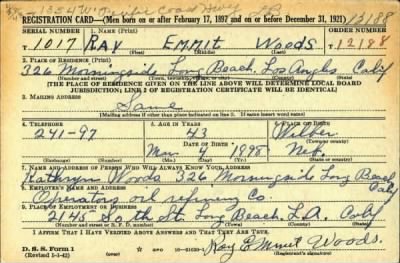 1334 W. Pacific Coast Hwy 12188
REGISTRATION CARD—(Men born on or after February 17, 1897 and on or before December 31, 1921)
SERIAL NUMBER 1. NAME (Print) ORDER NUMBER
T 1017 RAY EMMIT Woods T 12188
(First) (Middle) (Last)
2. PLACE OF RESIDENCE (Print)
326 Morningside Long Beach, Los Angles Calif
(Number and street) (Town, township, village, or city) (County) (State)
[THE PLACE OF RESIDENCE GIVEN ON THE LINE ABOVE WILL DETERMINE LOCAL BOARD
JURISDICTION; LINE 2 OF REGISTRATION CERTIFICATE WILL BE IDENTICAL]
3. MAILING ADDRESS
Same
[Mailing address if other than place indicated on line 2. If same insert word same]
4. TELEPHONE 5. AGE IN YEARS 6. PLACE OF BIRTH
241-97 43 Wilber
DATE OF BIRTH (Town or county)
Mar 4 1898 Neb
(Exchange) (Number) (Mo.) (Day) (Yr.) (State or country)
7. NAME AND ADDRESS OF PERSON WHO WILL ALWAYS KNOW YOUR ADDRESS
Kathryn Woods 326 Morningside Long Beach Calif
8. EMPLOYER'S NAME AND ADDRESS
Operators oil refining Co.
9. PLACE OF EMPLOYMENT OR BUSINESS
2145 So th St. Long Beach, L.A. Calif
(Number and street or R. F. D. number) (Town) (County) (State)
I AFFIRM THAT I HAVE VERIFIED ABOVE ANSWERS AND THAT THEY ARE TRUE.
D. S. S. Form 1
(Revised 1-1-42) GPO Ray Emmit Woods.
(Registrant's signature)